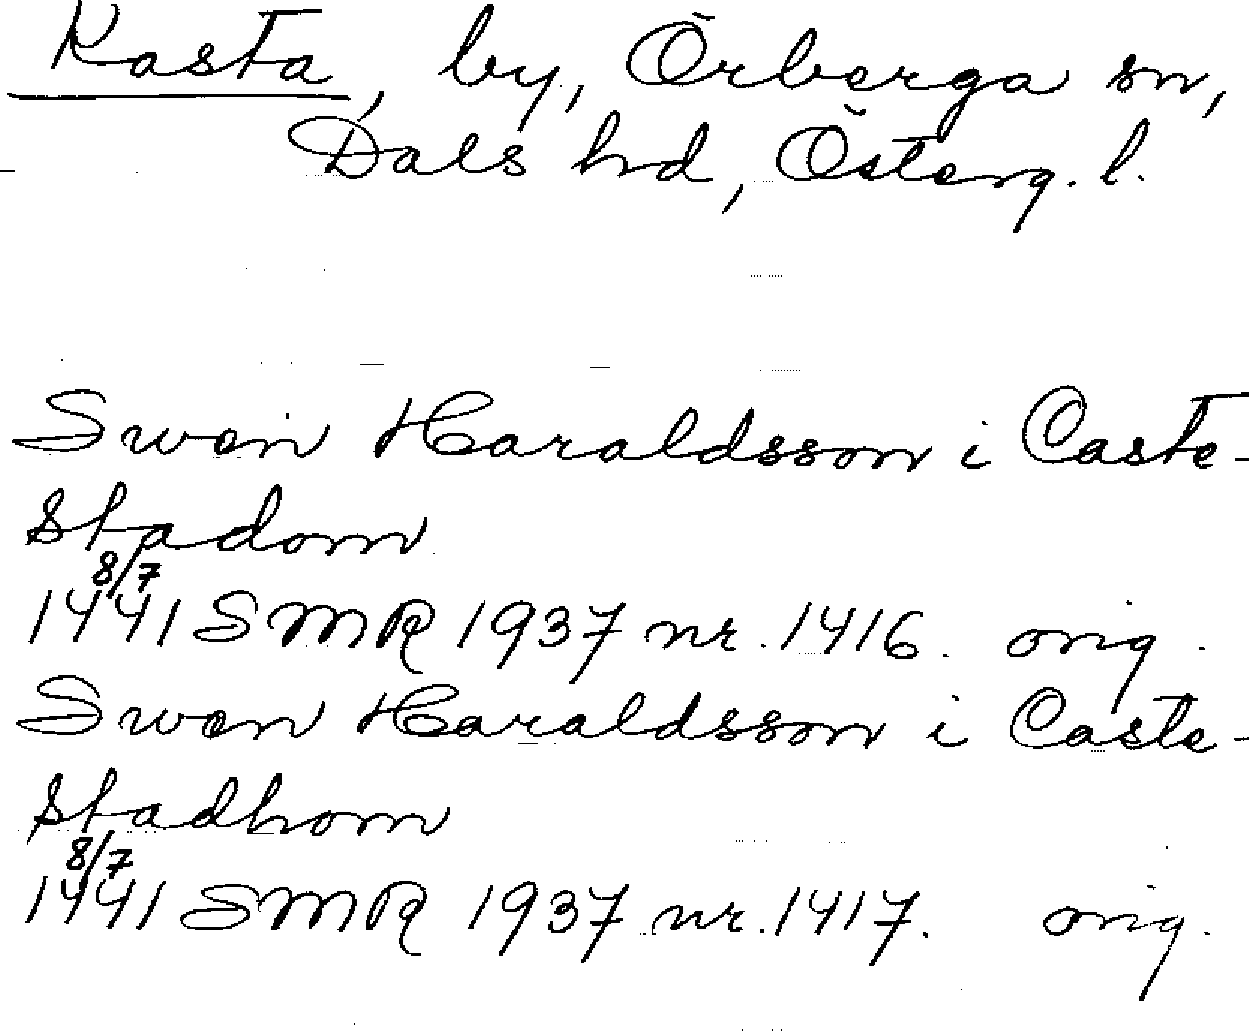 Kasta, by, Örberga sn,
Dals hd, Österg. l.
Swen Haraldsson i Caste-
stadom
8/7
1441 SMR 1937 nr. 1416. orig.
Swen Haraldsson i Caste-
stadhom
8/7
1441 SMR 1937 nr. 1417. orig.